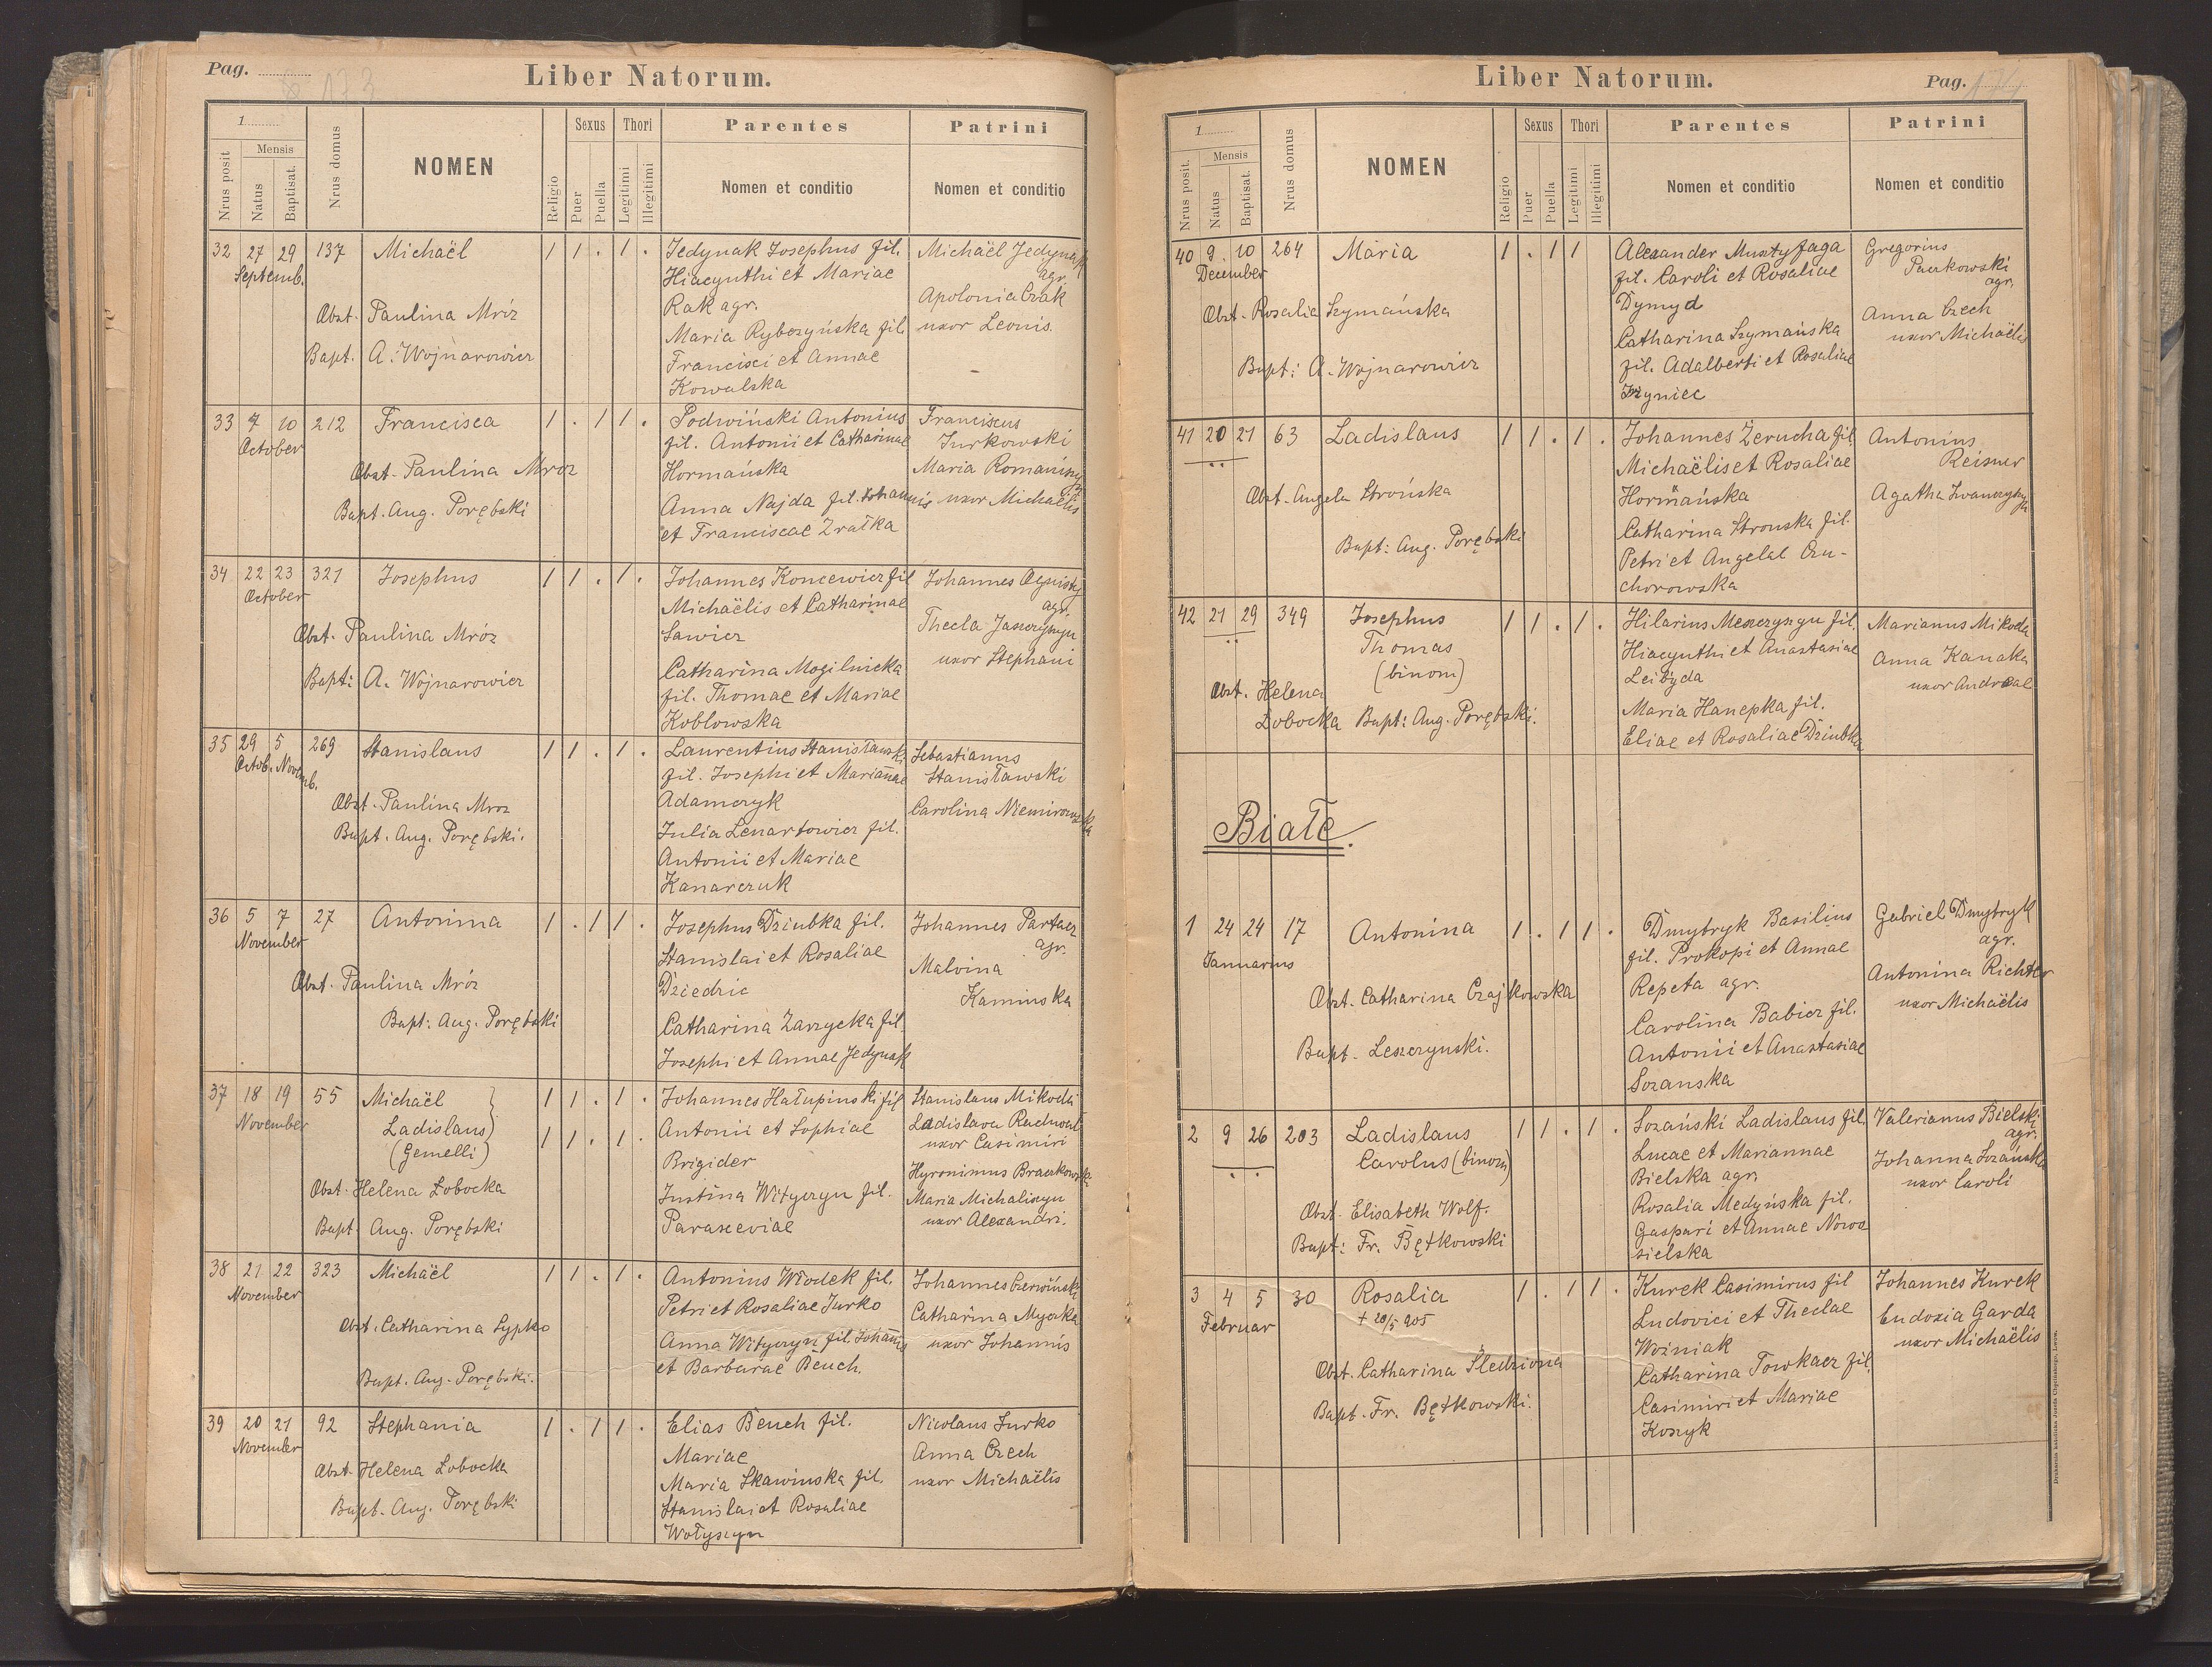 Pag. 173
Liber Natorum.
1
Nrus posit
Mensis
Natus
Baptisat.
Nrus domus
NOMEN
Religio
Sexus
Puer
Puella
Thori
Legitimi
Illegitimi
Parentes
Nomen et conditio
Patrini
Nomen et conditio
32 27 29 137 Michaël 1 1 . 1 .
Septemb.
Obst. Paulina Mróz
Bapt. A. Wojnarowicz
Jedynak Josephus fil.
Hiacynthi et Mariae
Rak agr.
Maria Rybczyńska fil.
Francisci et Annae
Kowalska
Michaël Jedynak
agr.
Apolonia Czak
uxor Leonis.
33 7 10 212 Francisca 1 . 1 1 .
October
Obst. Paulina Mroz
Bapt. Aug. Porębski
Podwiński Antonius
fil. Antonii et Catharinae
Hormańska
Anna Najda fil. Johannis
et Franciscae Zrałka
Franciscus
Jurkowski
Maria
uxor Michaëlis
34 22 23 321 Josephus 1 1 . 1 .
October
Obst. Paulina Mróz
Bapt: A. Wojnarowicz
Johannes Koncewicz fil
Michaëlis et Catharinae
Sawicz
Catharina Mogilnicka
fil. Thomae et Mariae
Koblowska
Johannes
agr.
Thecla
uxor Stephani
35 29 5 269 Stanislaus 1 1 . 1 .
Octob. Novemb.
Obst. Paulina Mroz
Bapt. Aug. Porębski.
Laurentius Stanisławski
fil. Josephi et Mariannae
Adamczyk
Julia Lenartowicz fil.
Antonii et Mariae
Kanarczuk
Sebastianus
Stanisławski
Carolina Niemirowska
36 5 7 27 Antonina 1 . 1 1 .
November
Obst. Paulina Mróz
Bapt: Aug. Porębski
Josephus Dziubka fil.
Stanislai et Rosaliae
Dziedzic
Catharina Zarzycka fil.
Josephi et Annae Jedynak
Johannes Partacz
agr.
Malvina
Kaminska
37 18 19 55 Michaël 1 1 . 1 .
November Ladislaus 1 1 . 1 .
(Gemelli)
Obst. Helena Łobocka
Bapt. Aug. Porębski
Johannes Hałupinski fil
Antonii et Sophiae
Brigider
Justina Wityczyn fil.
Parasceviae
Stanislaus Mikoda
Ladislava
uxor Casimiri
Hyronimus Braczkowski
Maria Michaliszyn
uxor Alexandri.
38 21 22 323 Michaël 1 1 . 1 .
November
Obst. Catharina Sypko
Bapt. Aug. Porębski.
Antonius Włodek fil.
Petri et Rosaliae Jurko
Anna Wityczyn fil. Johannis
et Barbarae Beuch.
Johannes Czerwiński
Catharina Mycka
uxor Johannis
39 20 21 92 Stephania 1 . 1 1 .
November
Obst. Helena Łobocka
Bapt. Aug. Porębski
Elias Beuch fil.
Mariae
Maria Skawinska fil.
Stanislai et Rosaliae
Wołyszyn
Nicolaus Jurko
Anna Czech
uxor Michaëlis
Liber Natorum.
Pag.
1
Nrus posit.
Mensis
Natus
Baptisat.
Nrus domus
NOMEN
Religio
Sexus
Puer
Puella
Thori
Legitimi
Illegitimi
Parentes
Nomen et conditio
Patrini
Nomen et conditio
40 9 10 264 Maria 1 . 1 1
December
Obst. Rosalia Szymańska
Bapt: A. Wojnarowicz
Alexander Musztyfaga
fil. Caroli et Rosaliae
Dymyd
Catharina Szymańska
fil. Adalberti et Rosaliae
Gregorius
Paczkowski
agr.
Anna Czech
uxor Michaëlis
41 20 21 63 Ladislaus 1 1 . 1 .
Obst. Angela Strońska
Bapt: Aug. Porębski
Johannes Żerucha fil
Michaëlis et Rosaliae
Hormańska
Catharina Stronska fil.
Petri et Angelae Czu-
chorowska
Antonius
Reisner
Agatha
42 21 29 349 Josephus 1 1 . 1 .
Thomas
(binom)
Obst. Helena
Łobocka Bapt: Aug. Porębski.
Hilarius Meszczyszyn fil.
Hiacynthi et Anastasiae
Leibyda
Maria Hanepka fil.
Eliae et Rosaliae Dziubka
Marianus Mikoda
Anna Kanaka
uxor Andreae
Białe.
1 24 24 17 Antonina 1 . 1 1 .
Januarius
Obst. Catharina Czajkowska
Bapt. Leszczynski.
Dmytryk Basilius
fil. Prokopi et Annae
Repeta agr.
Carolina Babicz fil.
Antonii et Anastasiae
Sozanska
Gabriel Dmytryk
agr.
Antonina Richter
uxor Michaëlis
2 9 26 203 Ladislaus 1 1 . 1 .
Carolus (binom)
Obst. Elisabeth Wolf.
Bapt: Fr. Bętkowski
Sozański Ladislaus fil.
Lucae et Mariannae
Bielska agr.
Rosalia Medyńska fil.
Gaspari et Annae Nowo
sielska
Valerianus Bielski
agr.
Johanna Sozańska
uxor Caroli
3 4 5 30 Rosalia 1 . 1 1 .
Februar + 20/5 905
Obst. Catharina Śledziona
Bapt. Fr. Bętkowski.
Kurek Casimirus fil
Ludovici et Theclae
Woźniak
Catharina Towkacz fil.
Casimiri et Mariae
Koszyk
Johannes Kurek
Eudoxia Garda
uxor Michaëlis